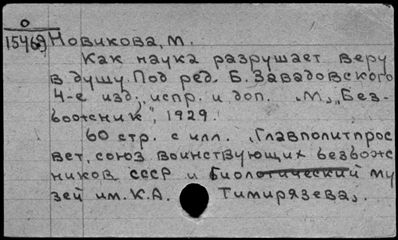 0
15469 Новикова, М.
Как наука разрушает веру
в душу. Под ред. Б. Завадовского
4-е изд., испр. и доп. М., „Без-
божник", 1929.
60 стр. с илл. (Главполитпрос
вет, союз воинствующих безбож
ников СССР и биологический му
зей им. К.А. Тимирязева).